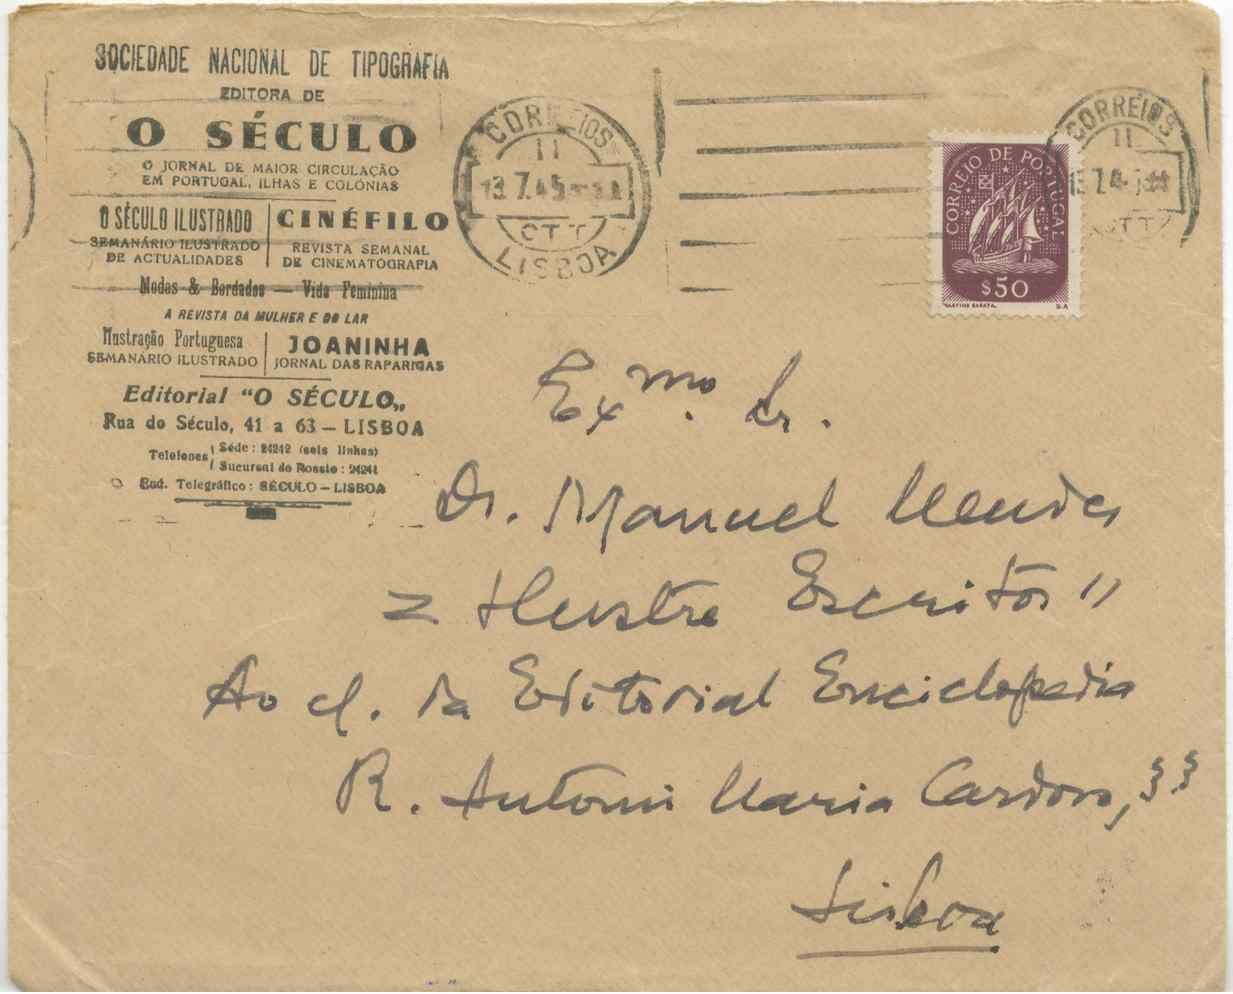 SOCIEDADE NACIONAL DE TIPOGRAFIA
EDITORA DE
O SÉCULO
O JORNAL DE MAIOR CIRCULAÇÃO
EM PORTUGAL, ILHAS E COLÓNIAS
O SÉCULO ILUSTRADO
SEMANÁRIO ILUSTRADO
DE ACTUALIDADES
CINÉFILO
REVISTA SEMANAL
DE CINEMATOGRAFIA
Modas & Bordados — Vida Feminina
A REVISTA DA MULHER E DO LAR
Ilustração Portuguesa
SEMANÁRIO ILUSTRADO
JOANINHA
JORNAL DAS RAPARIGAS
Editorial "O SÉCULO„
Rua do Século, 41 a 63 — LISBOA
Telefones
Séde : 24242 (seis linhas)
Sucursal do Rossio : 24241
End. Telegráfico : SÉCULO — LISBOA
CORREIOS
11
13.7.45
CTT
LISBOA
CORREIO DE PORTUGAL
$50
MARTINS BARATA.
CORREIOS
11
13.7.4
CTT
Exmo. Sr.
Dr. Manuel Mendes
= Ilustre Escritor "
Ao c/. da Editorial Enciclopedia
R. Antonio Maria Cardoso, 33
Lisboa